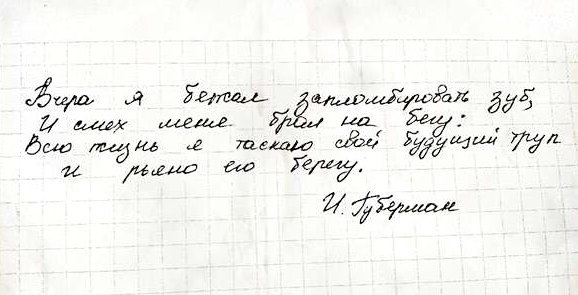 Вчера я бежал запломбировать зуб,
И смех меня брал на бегу:
Всю жизнь я таскаю свой будущий труп
и рьяно его берегу.
И. Губерман